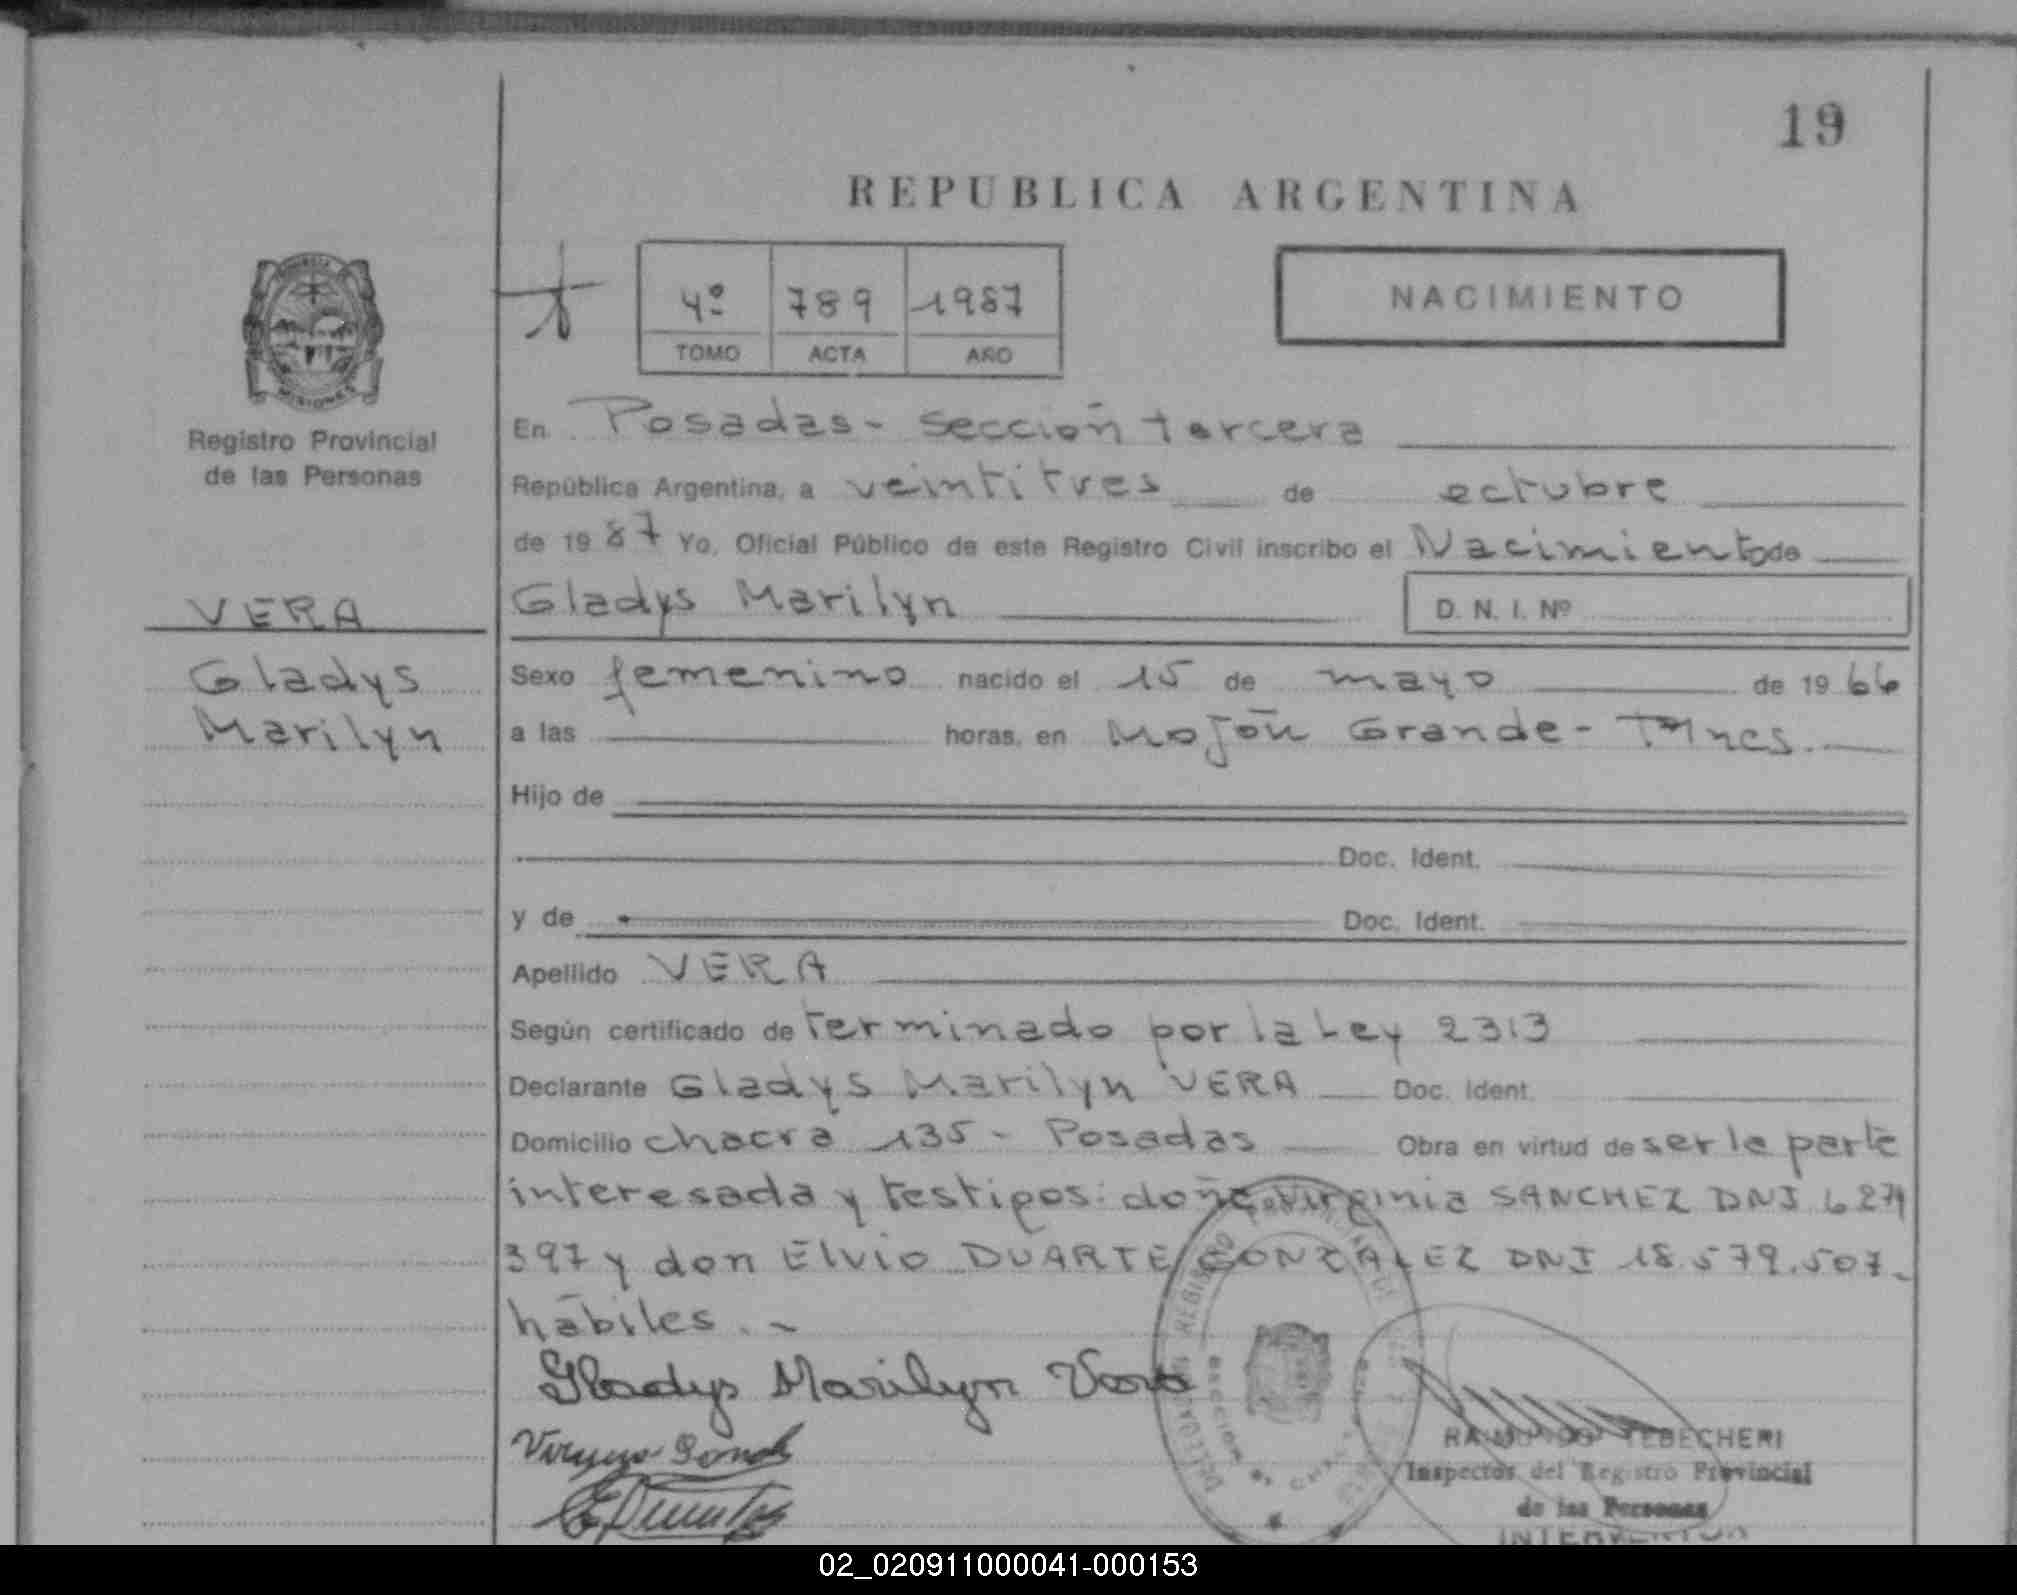 19
REPUBLICA ARGENTINA
4º 789 1987
TOMO ACTA AÑO
NACIMIENTO
MISIONES
Registro Provincial
de las Personas
VERA
Gladys
Marilyn
En Posadas - sección tercera
República Argentina, a veintitres de octubre
de 1987 Yo, Oficial Público de este Registro Civil inscribo el Nacimiento de
Gladys Marilyn D. N. I. Nº
Sexo femenino nacido el 15 de mayo de 1966
a las horas, en Mojón Grande - Mnes.
Hijo de
Doc. Ident.
y de Doc. Ident.
Apellido VERA
Según certificado de terminado por la Ley 2313
Declarante Gladys Marilyn VERA Doc. Ident.
Domicilio chacra 135 - Posadas Obra en virtud de ser la parte
interesada y testigos: doña Virginia SANCHEZ DNI 6274
397 y don Elvio DUARTE GONZALEZ DNI 18.579.507.
hábiles. -
Gladys Marilyn Vera
RAIMUNDO TEBECHERI
Inspector del Registro Provincial
de las Personas
INTERVENTOR
02_020911000041-000153